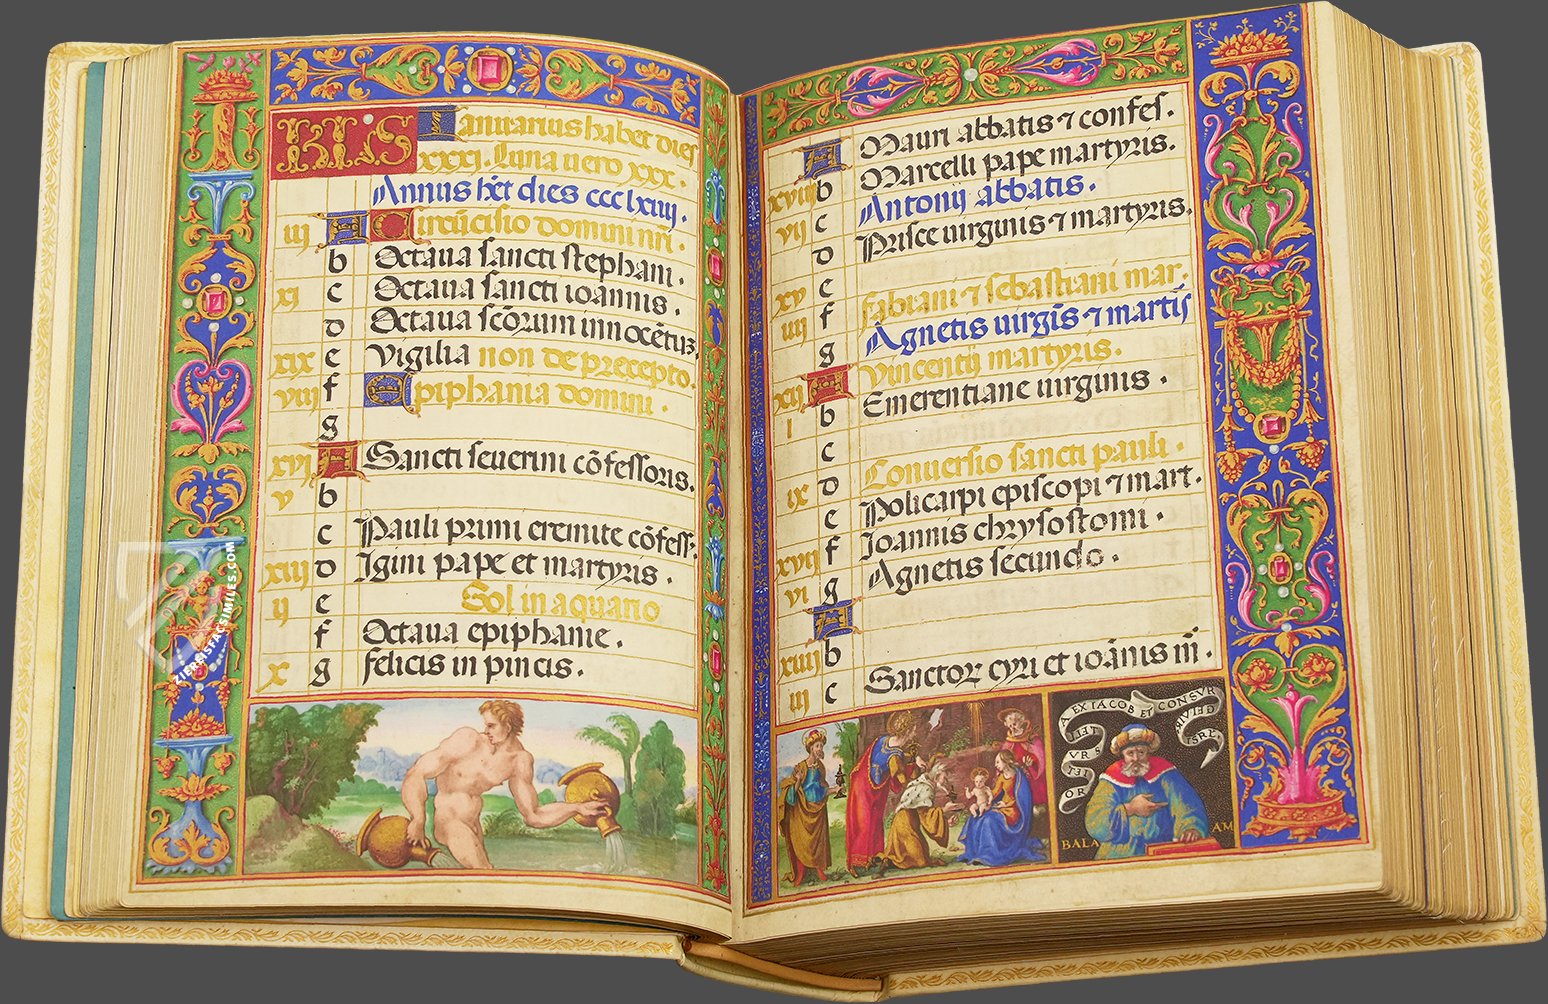 KLS Ianuarius habet dies
xxxi. Luna uero xxx.
Annus hēt dies ccclxiiii.
iii A Circūcisio domini nri.
b Octaua sancti stephani.
xi c Octaua sancti ioannis.
d Octaua scōrum innocētū
xix e Vigilia non de precepto.
viii f Epiphania domini.
g
xvi A Sancti seuerini cōfessoris.
v b
c Pauli primi eremite cōfess.
xiii d Igini pape et martyris.
ii e Sol in aquario
f Octaua epiphanie.
x g felicis in pincis.
A Mauri abbatis ⁊ confes.
xviii b Marcelli pape martyris.
vii c Antonij abbatis.
d Prisce uirginis ⁊ martyris.
xv e
iiii f fabiani ⁊ sebastiani mar.
g Agnetis uirgīs ⁊ martis
xii A Vincentij martyris.
i b Emerentiane uirginis.
c
ix d Conuersio sancti pauli.
e Policarpi episcopi ⁊ mart.
xvii f Ioannis chrysostomi.
vi g Agnetis secundo.
A
xiiii b
iii c Sanctor cyri et ioānis m̄.
ORIETVR STELLA EX IACOB ET CONSVRGET VIRGA DE ISRL.
BALAAM
ZIEREISFACSIMILES.COM